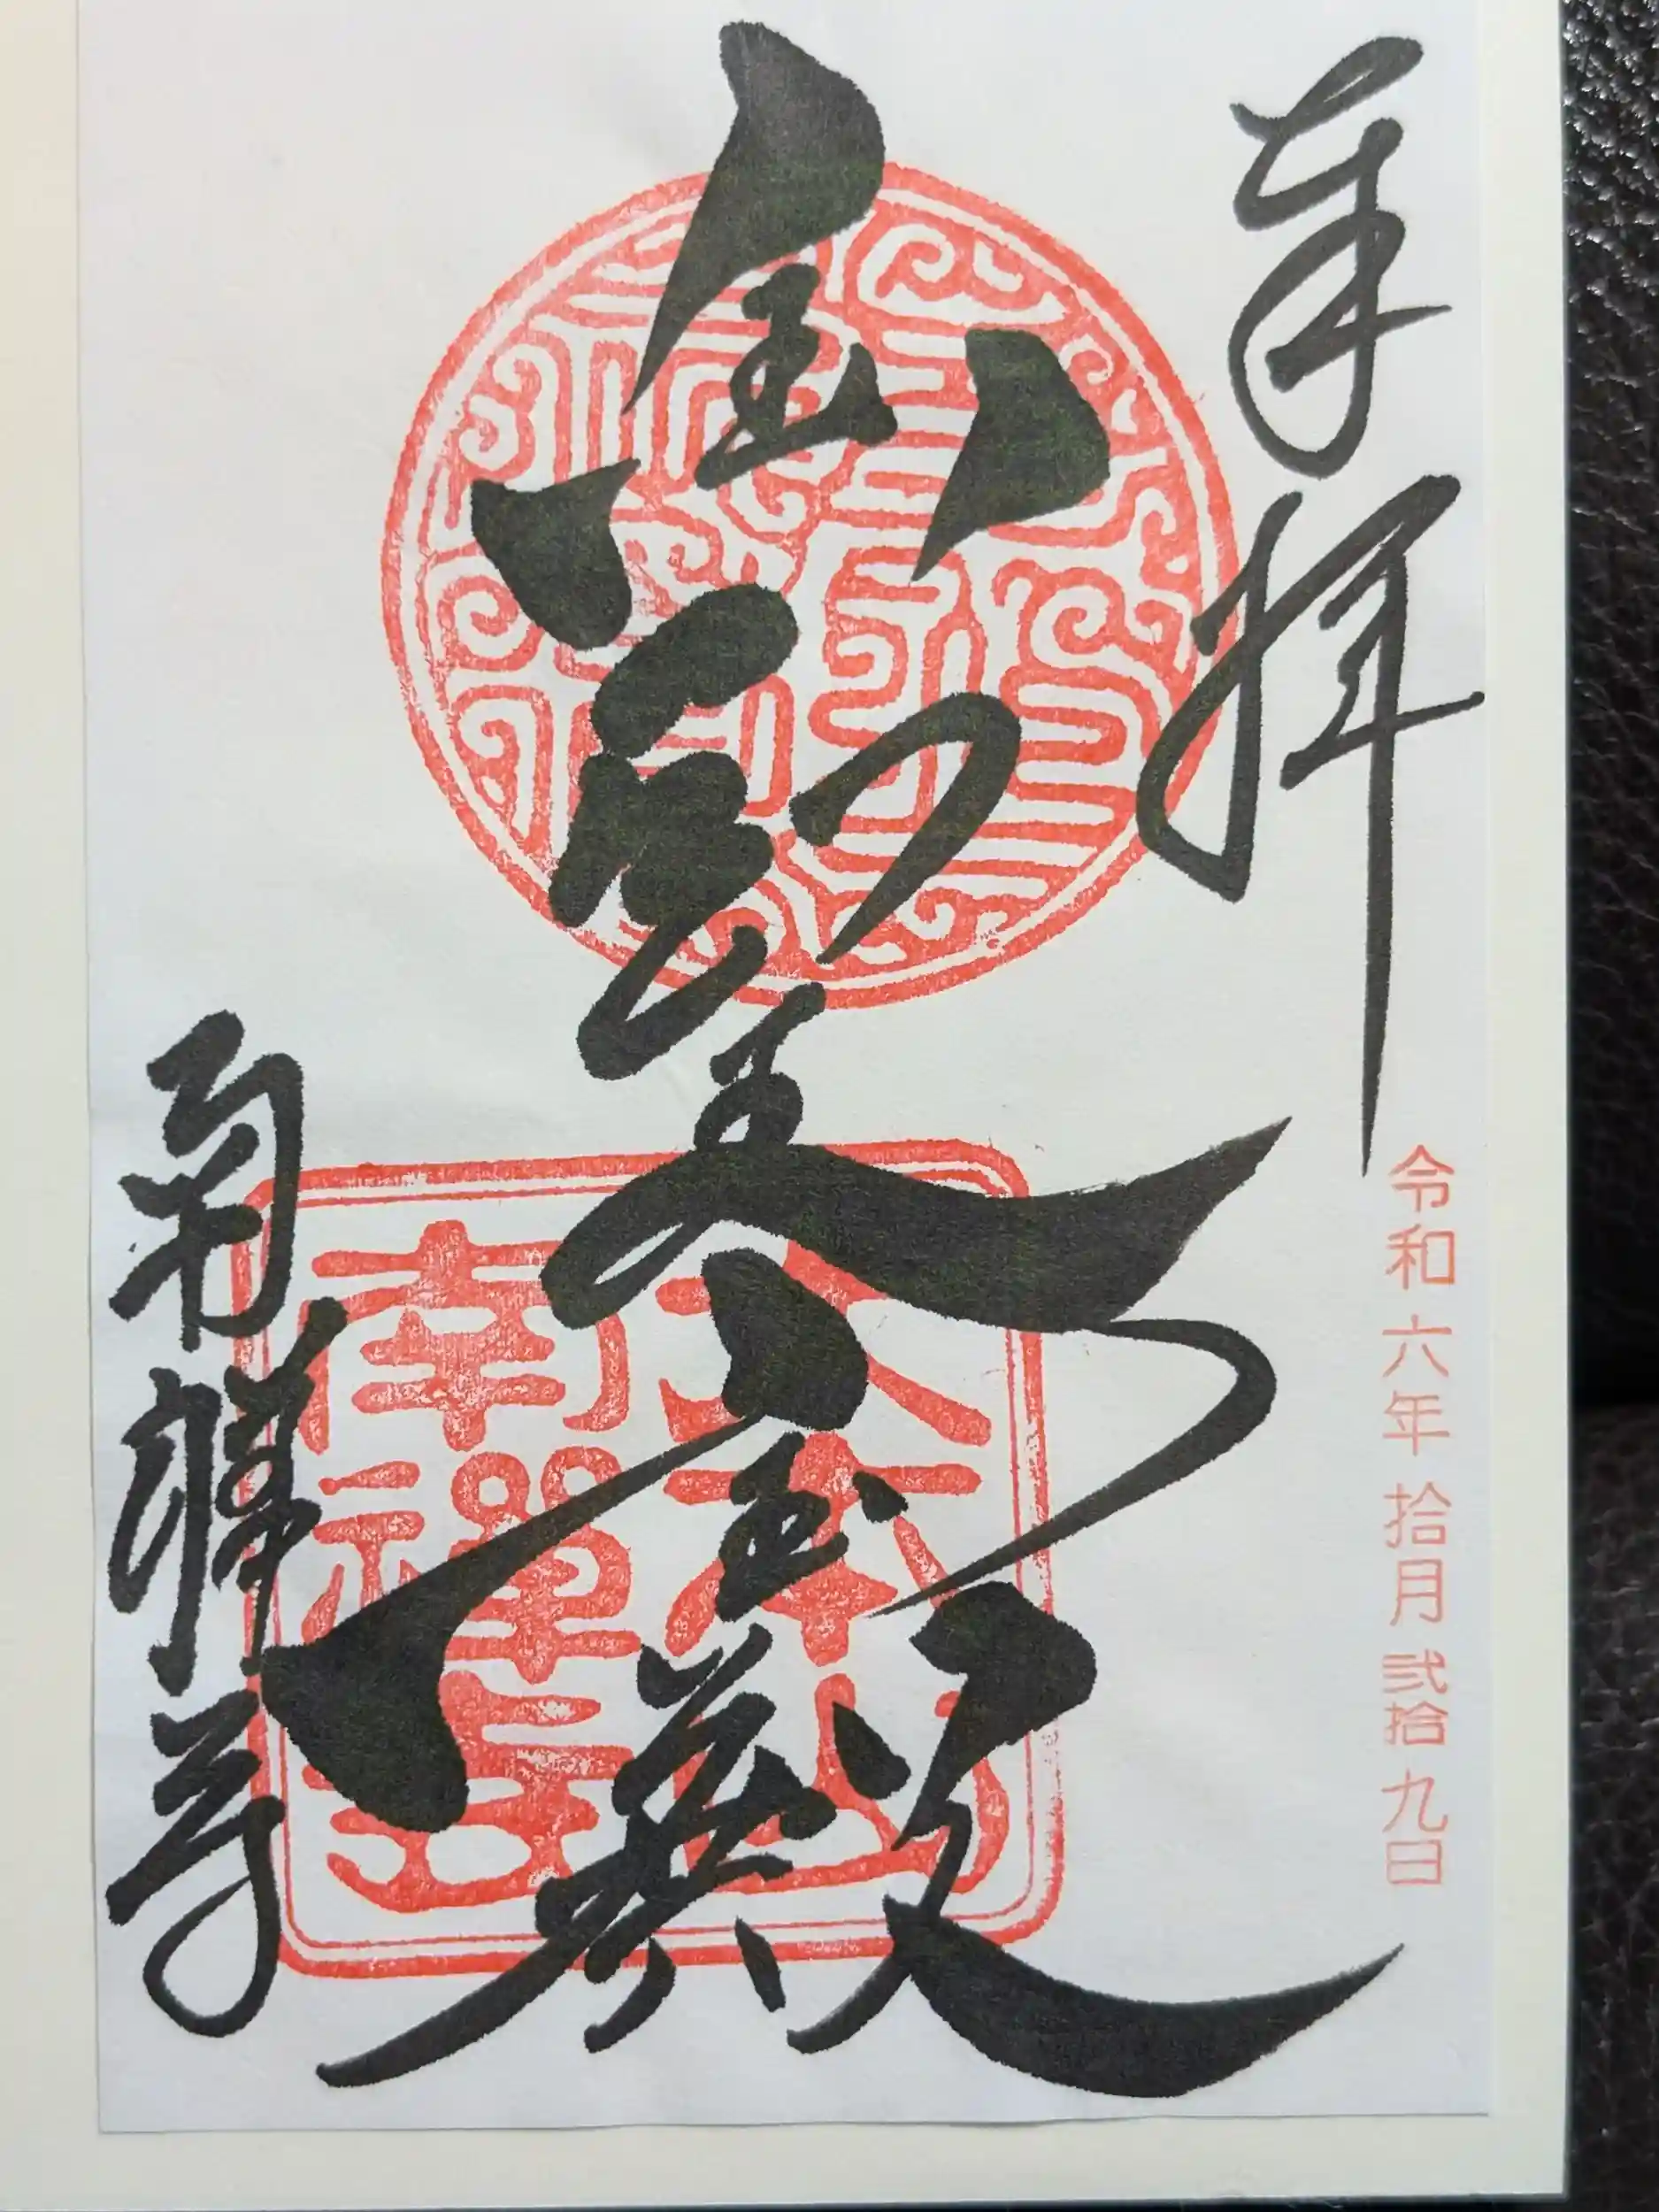 奉拝
令和六年拾月弐拾九日
金剛王宝殿
大本山
南禪寺
南禅寺